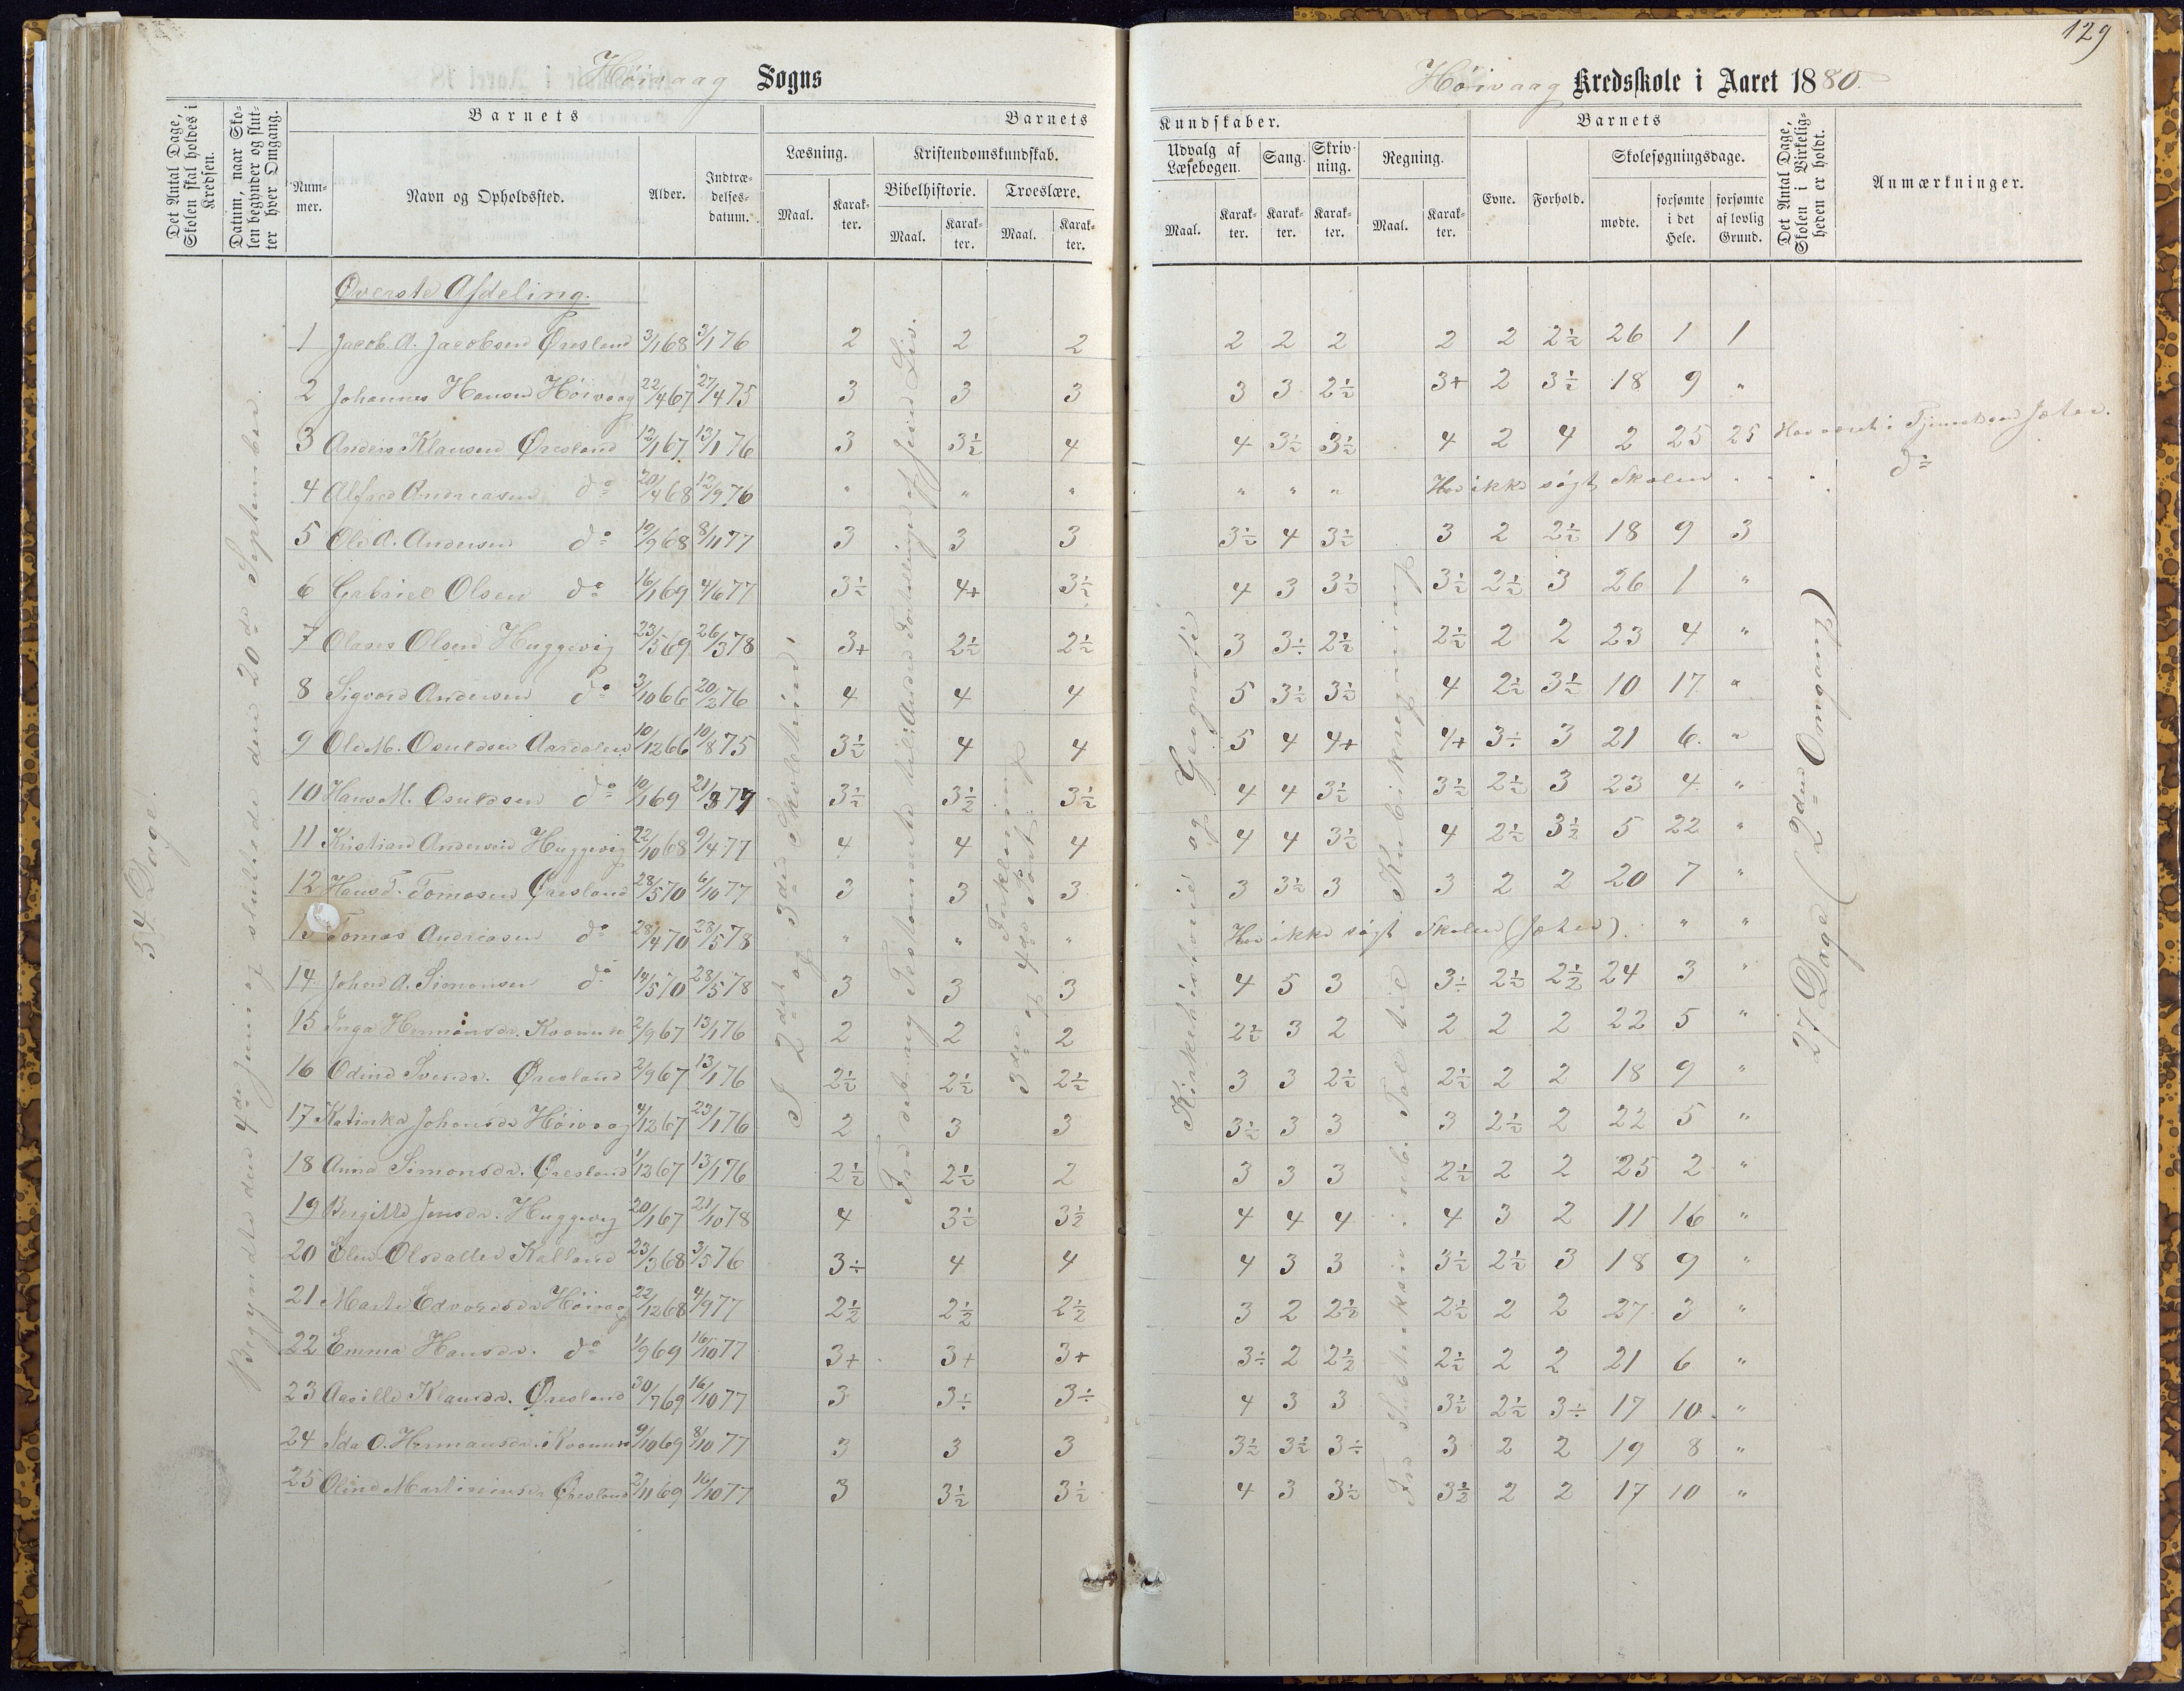 129
Høivaag Sogns
Høivaag Kredsskole i Aaret 1880.
Det Antal Dage, Skolen skal holdes i Kredsen.
Datum, naar Skolen begynder og slutter hver Omgang.
Barnets
Nummer.
Navn og Opholdssted.
Alder.
Indtrædelsesdatum.
Barnets
Læsning.
Maal.
Karakter.
Kristendomskundskab.
Bibelhistorie.
Maal.
Karakter.
Troeslære.
Maal.
Karakter.
Kundskaber.
Udvalg af Læsebogen.
Maal.
Karakter.
Sang.
Karakter.
Skrivning.
Karakter.
Regning.
Maal.
Karakter.
Barnets
Evne.
Forhold.
Skolesøgningsdage.
mødte.
forsømte i det Hele.
forsømte af lovlig Grund.
Det Antal Dage, Skolen i Virkeligheden er holdt.
Anmærkninger.
54 Dage.
Begyndte den 4de Juni og sluttede den 20de September.
I 2det og 3die Skoletrin.
Fra det ny Testamente til: Andre Fortællinger af Jesu Liv.
3die og 4de Part. Forklaring
Kirkehistorie og Geografi
Fra Subtraksion i ub. Tal til Kubikregning
27 Dage (2den Omgang)
Øverste Afdeling.
1 Jacob A. Jacobsen Øresland 3/1 68 3/1 76 2 2 2 2 2 2 2 2 2½ 26 1 1
2 Johannes Hansen Høivaag 22/4 67 27/4 75 3 3 3 3 3 2½ 3+ 2 3½ 18 9 "
3 Anders Klausen Øresland 12/1 67 13/1 76 3 3½ 4 4 3½ 3½ 4 2 4 2 25 25 Har været i Tjeneste som Jæter.
4 Alfred Andreasen do 20/4 68 12/9 76 " " " " " " Har ikke søgt Skolen do
5 Ole A. Andersen do 19/9 68 8/11 77 3 3 3 3½ 4 3½ 3 2 2½ 18 9 3
6 Gabriel Olsen do 16/1 69 4/6 77 3½ 4+ 3½ 4 3 3½ 3½ 2½ 3 26 1 "
7 Olaves Olsen Huggevig 23/5 69 26/3 78 3+ 2½ 2½ 3 3÷ 2½ 2½ 2 2 23 4 "
8 Sigvard Andersen do 3/10 66 20/2 76 4 4 4 5 3½ 3½ 4 2½ 3½ 10 17 "
9 Ole M. Osuldsen Aardalen 10/12 66 10/8 75 3½ 4 4 5 4 4+ 4+ 3÷ 3 21 6 "
10 Hans M. Osuldsen do 10/1 69 21/3 77 3½ 3½ 3½ 4 4 3½ 3½ 2½ 3 23 4 "
11 Kristian Andersen Huggevig 22/10 68 9/4 77 4 4 4 4 4 3½ 4 2½ 3½ 5 22 "
12 Hans T. Tomasen Øresland 28/5 70 6/10 77 3 3 3 3 3½ 3 3 2 2 20 7 "
13 Tomas Andreasen do 28/4 70 28/5 78 " " " Har ikke søgt Skolen (Jæter). " "
14 Johan A. Simonsen do 14/5 70 28/5 78 3 3 3 4 5 3 3÷ 2½ 2½ 24 3 "
15 Inga Hermansdr. 2/9 67 13/1 76 2 2 2 2½ 3 2 2 2 2 22 5 "
16 Odine Svensdr. Øresland 2/9 67 13/1 76 2½ 2½ 2½ 3 3 2½ 2½ 2 2 18 9 "
17 Katinka Johansdr Høivaag 4/12 67 23/1 76 2 3 3 3½ 3 3 3 2½ 2 22 5 "
18 Anna Simonsdr. Øresland 1/12 67 13/1 76 2½ 2½ 2 3 3 3 2½ 2 2 25 2 "
19 Bergitte Jensdr. Huggevig 20/1 67 21/10 78 4 3½ 3½ 4 4 4 4 3 2 11 16 "
20 Elen Olsdatter Kalland 23/3 68 3/5 76 3÷ 4 4 4 3 3 3½ 2½ 3 18 9 "
21 Marte Edvardsdr Høivaag 22/12 68 4/9 77 2½ 2½ 2½ 3 2 2½ 2½ 2 2 27 3 "
22 Emma Hansdr. do 1/9 69 16/10 77 3+ 3+ 3+ 3÷ 2 2½ 2½ 2 2 21 6 "
23 Klausdr. Øresland 30/7 69 16/10 77 3 3÷ 3÷ 4 3 3 3½ 2½ 3÷ 17 10 "
24 Ida O. Hermansdr. 9/10 69 8/10 77 3 3 3 3½ 3½ 3÷ 3 2 2 19 8 "
25 Oline Martiniusdr Øresland 2/11 69 16/10 77 3 3½ 3½ 4 3 3½ 3½ 2 2 17 10 "